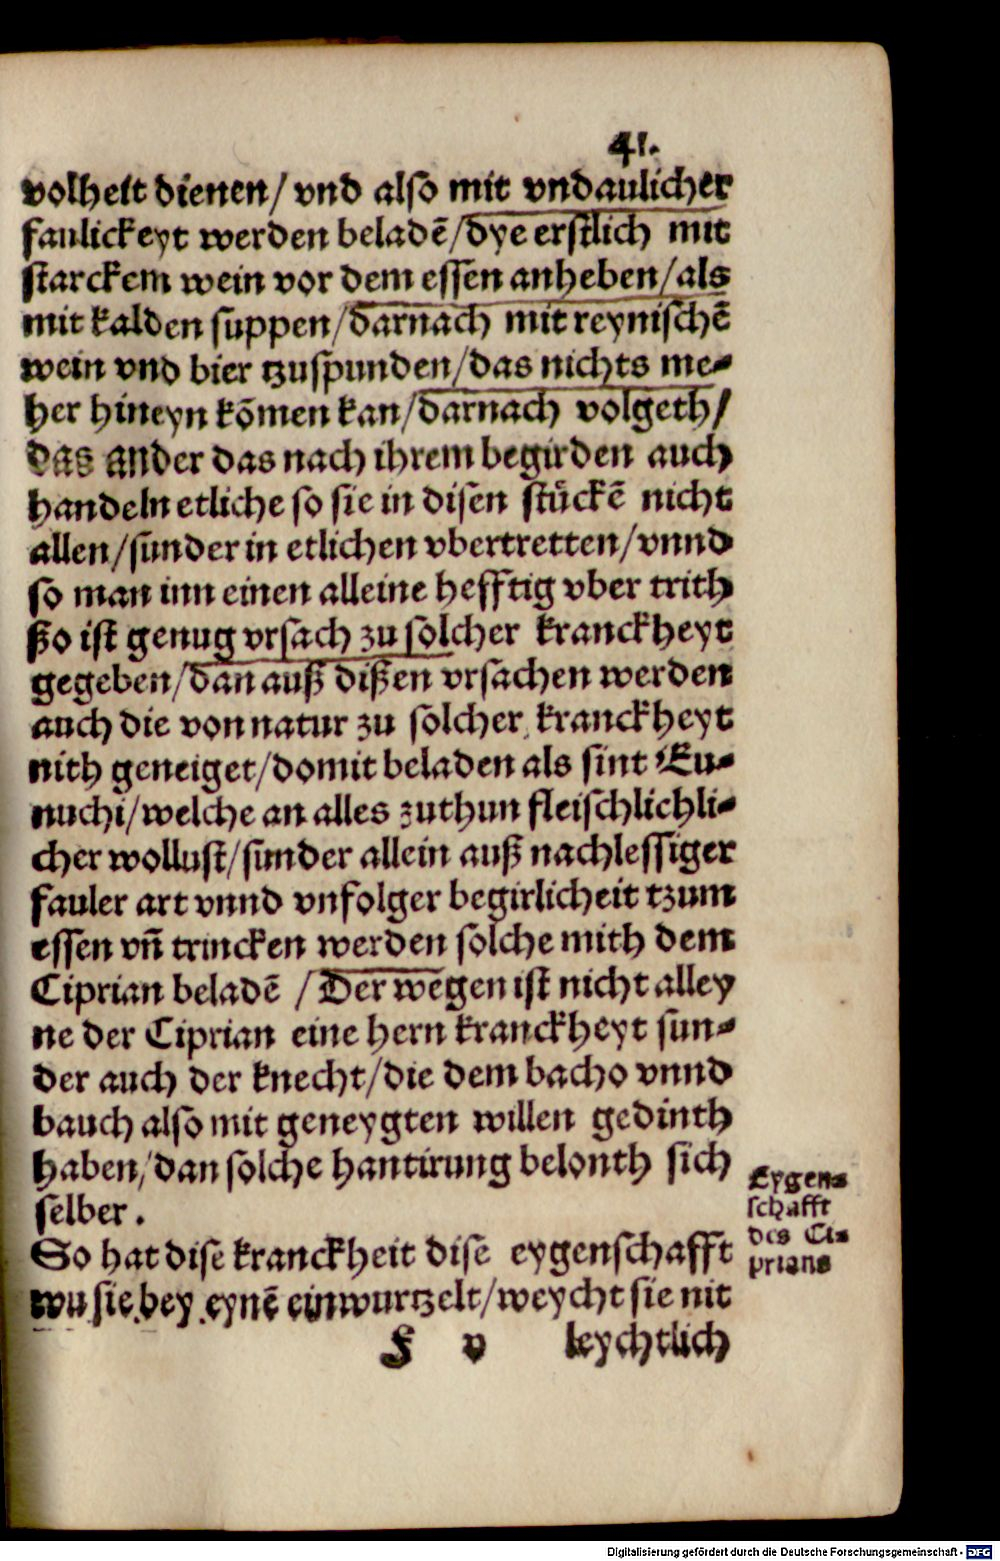 41.
volheit dienen/ vnd also mit vndaulicher
faulickeyt werden beladē/dye erstlich mit
starckem wein vor dem essen anheben/als
mit kalden suppen/darnach mit reynischē
wein vnd bier tzuspunden/das nichts me⸗
her hineyn kōmen kan/darnach volgeth/
das ander das nach ihrem begirden auch
handeln etliche so sie in disen stückē nicht
allen/sunder in etlichen vbertretten/vnnd
so man inn einen alleine hefftig vber trith
ßo ist genug vrsach zu solcher kranckheyt
gegeben/dan auß dißen vrsachen werden
auch die von natur zu solcher kranckheyt
nith geneiget/domit beladen als sint Eu⸗
nuchi/welche an alles zuthun fleischlichli⸗
cher wollust/sunder allein auß nachlessiger
fauler art vnnd vnfolger begirlicheit tzum
essen vn̄ trincken werden solche mith dem
Ciprian beladē /Der wegen ist nicht alley
ne der Ciprian eine hern kranckheyt sun⸗
der auch der knecht/die dem bacho vnnd
bauch also mit geneygten willen gedinth
haben/dan solche hantirung belonth sich
selber.
So hat dise kranckheit dise eygenschafft
wu sie bey eynē einwurtzelt/weycht sie nit
F v leychtlich
Eygen⸗
schafft
des Ci⸗
prians
Digitalisierung gefördert durch die Deutsche Forschungsgemeinschaft - DFG